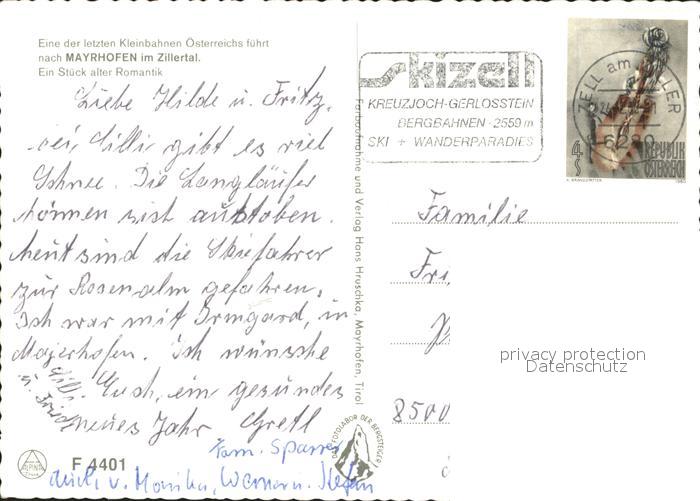 Eine der letzten Kleinbahnen Österreichs führt
nach MAYRHOFEN im Zillertal.
Ein Stück alter Romantik
Liebe Hilde u. Fritz,
bei Cilli gibt es viel
Schnee. Die Langläufer
können sich austoben.
heut sind die Skifahrer
zur Rosenalm gefahren.
Ich war mit Irmgard, in
Majerhofen. Ich wünsche
Euch, ein gesundes
neues Jahr Gretl
Cilli
u. Fritz
Fam. Sparrer
auch v. Monika, Werner u. Stefan
F 4401
ALPINA
Farbaufnahme und Verlag Hans Hruschka, Mayrhofen, Tirol
DAS FOTOLABOR DER BERGSTEIGER
skizell
KREUZJOCH-GERLOSSTEIN
BERGBAHNEN · 2559 m
SKI + WANDERPARADIES
ZELL am ZILLER
6280
4 S
REPUBLIK
ÖSTERREICH
Familie
Fri
8500
privacy protection
Datenschutz